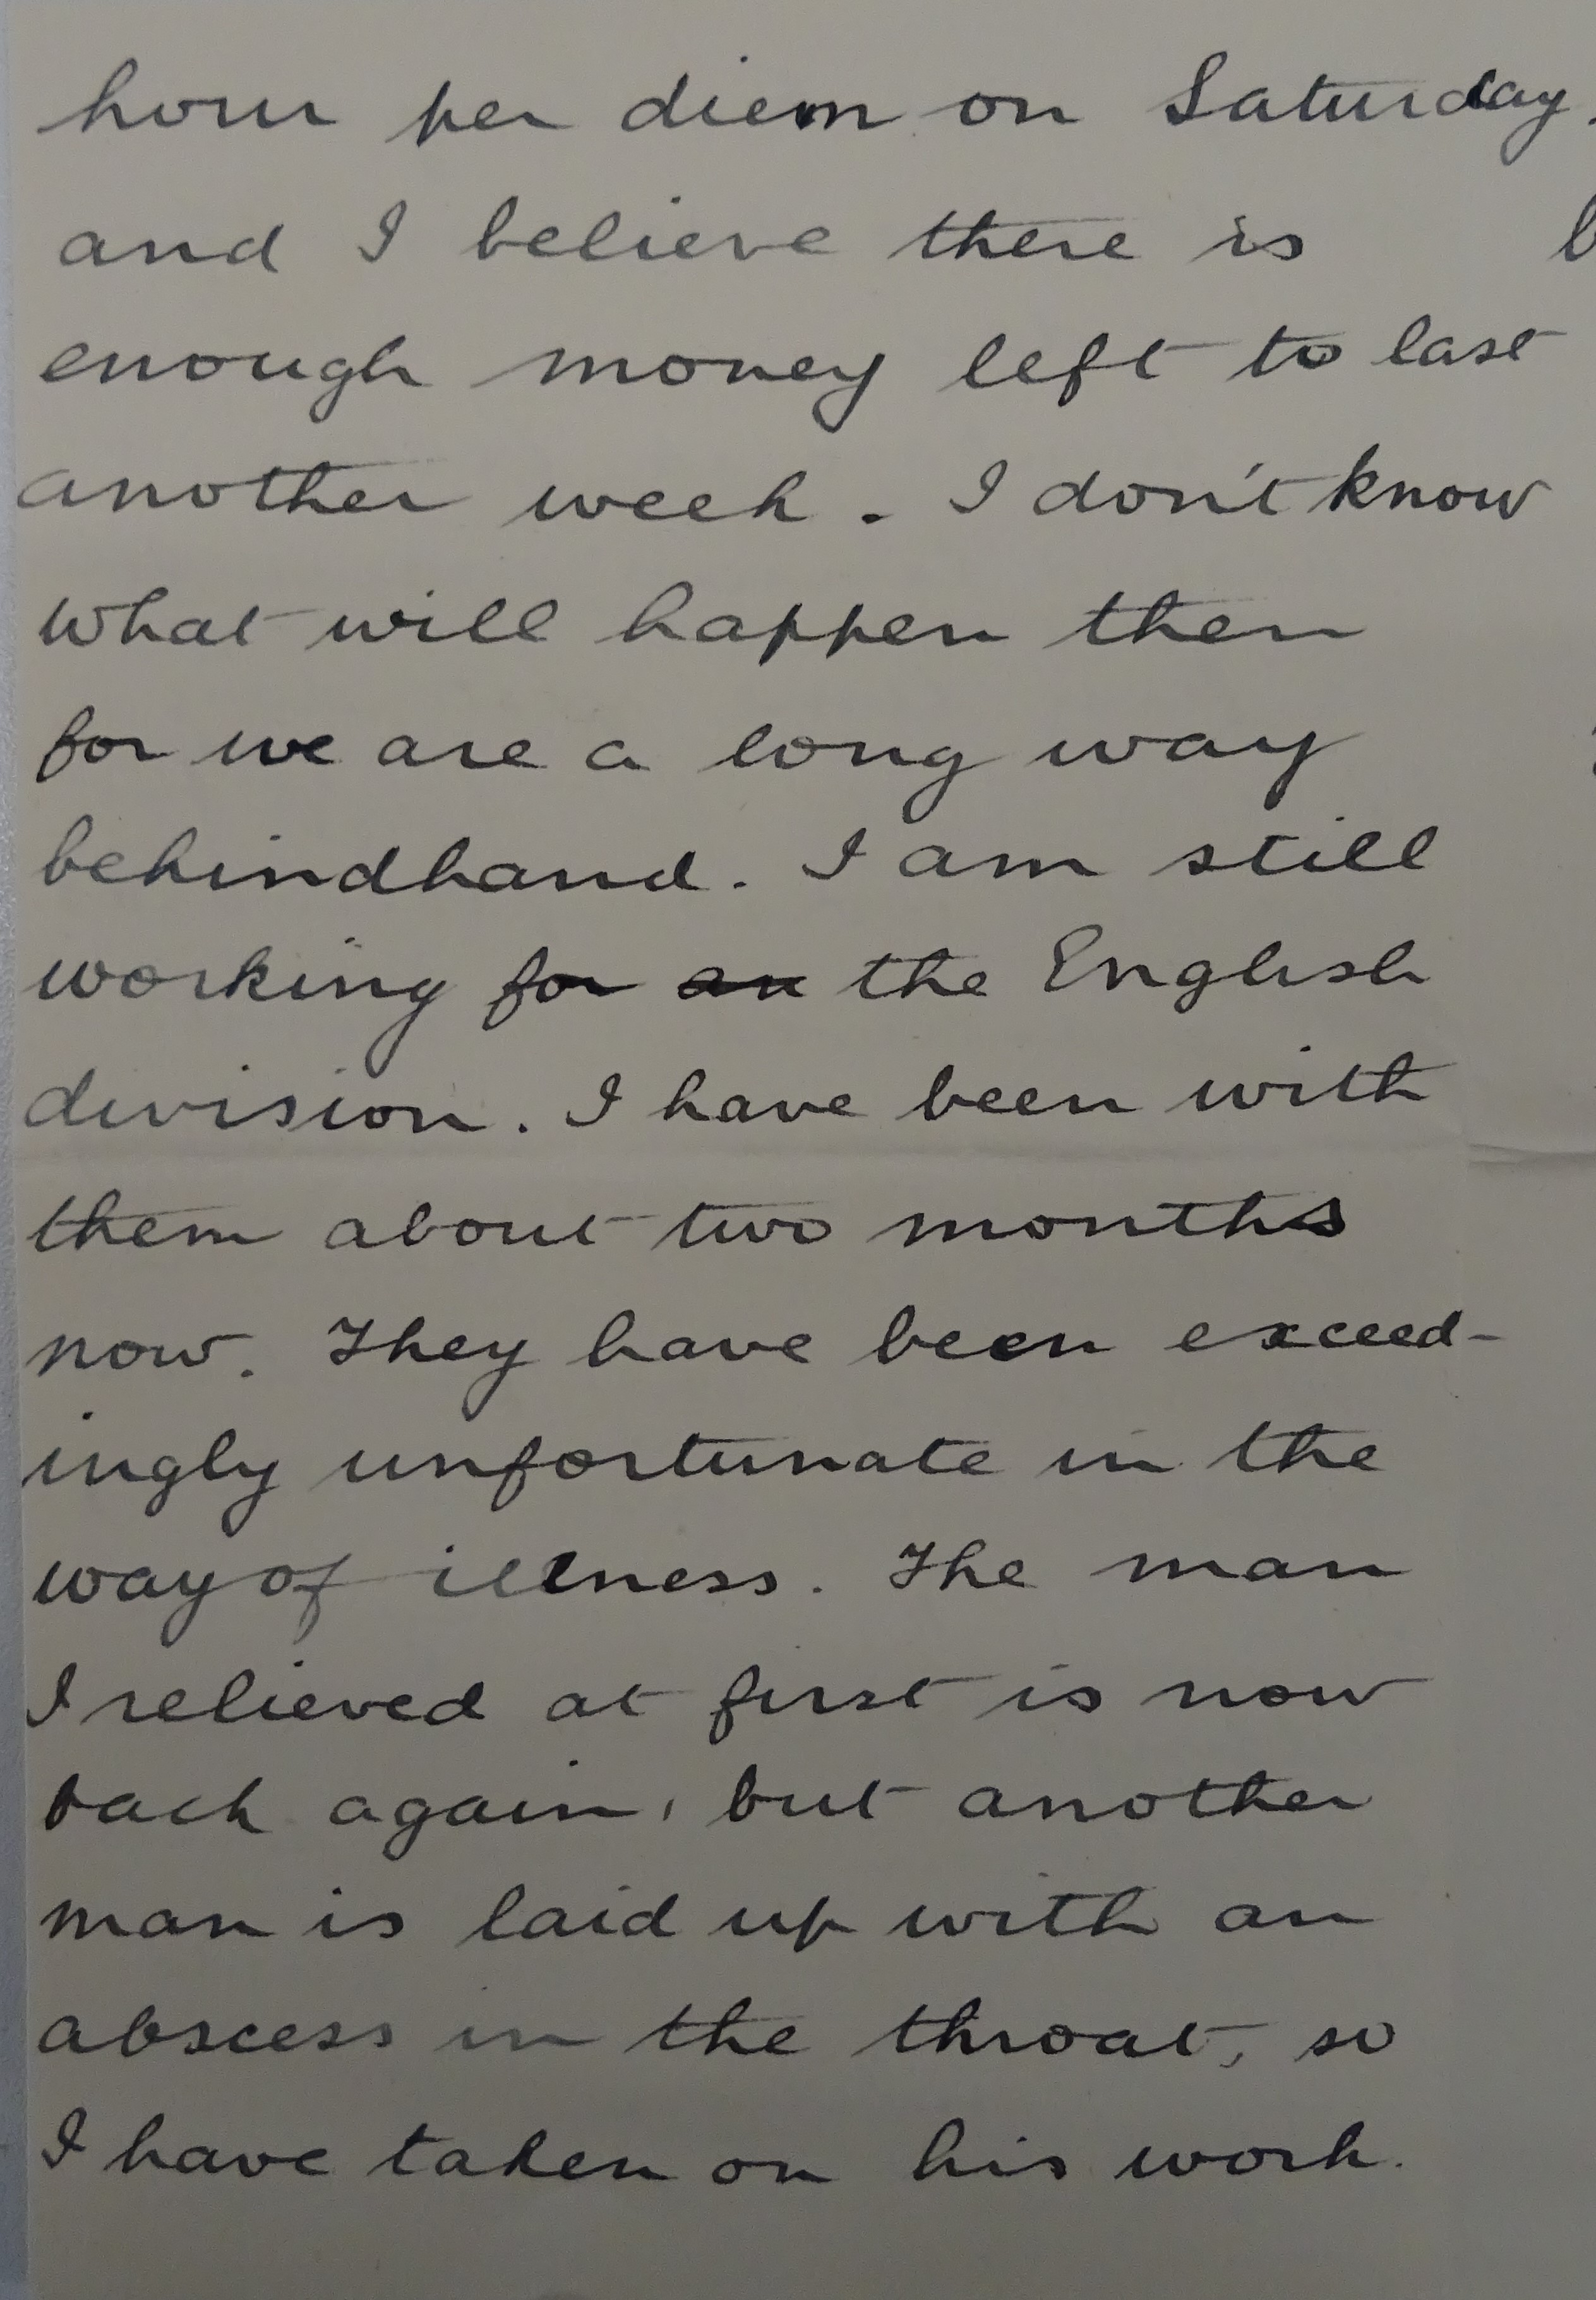 hour per diem on Saturday.
and I believe there is
enough money left to last
another week. I don't know
what will happen then
for we are a long way
behindhand. I am still
working for an the English
division. I have been with
them about two months
now. They have been exceed-
ingly unfortunate in the
way of illness. The man
I relieved at first is now
back again, but another
man is laid up with an
abscess in the throat, so
I have taken on his work.